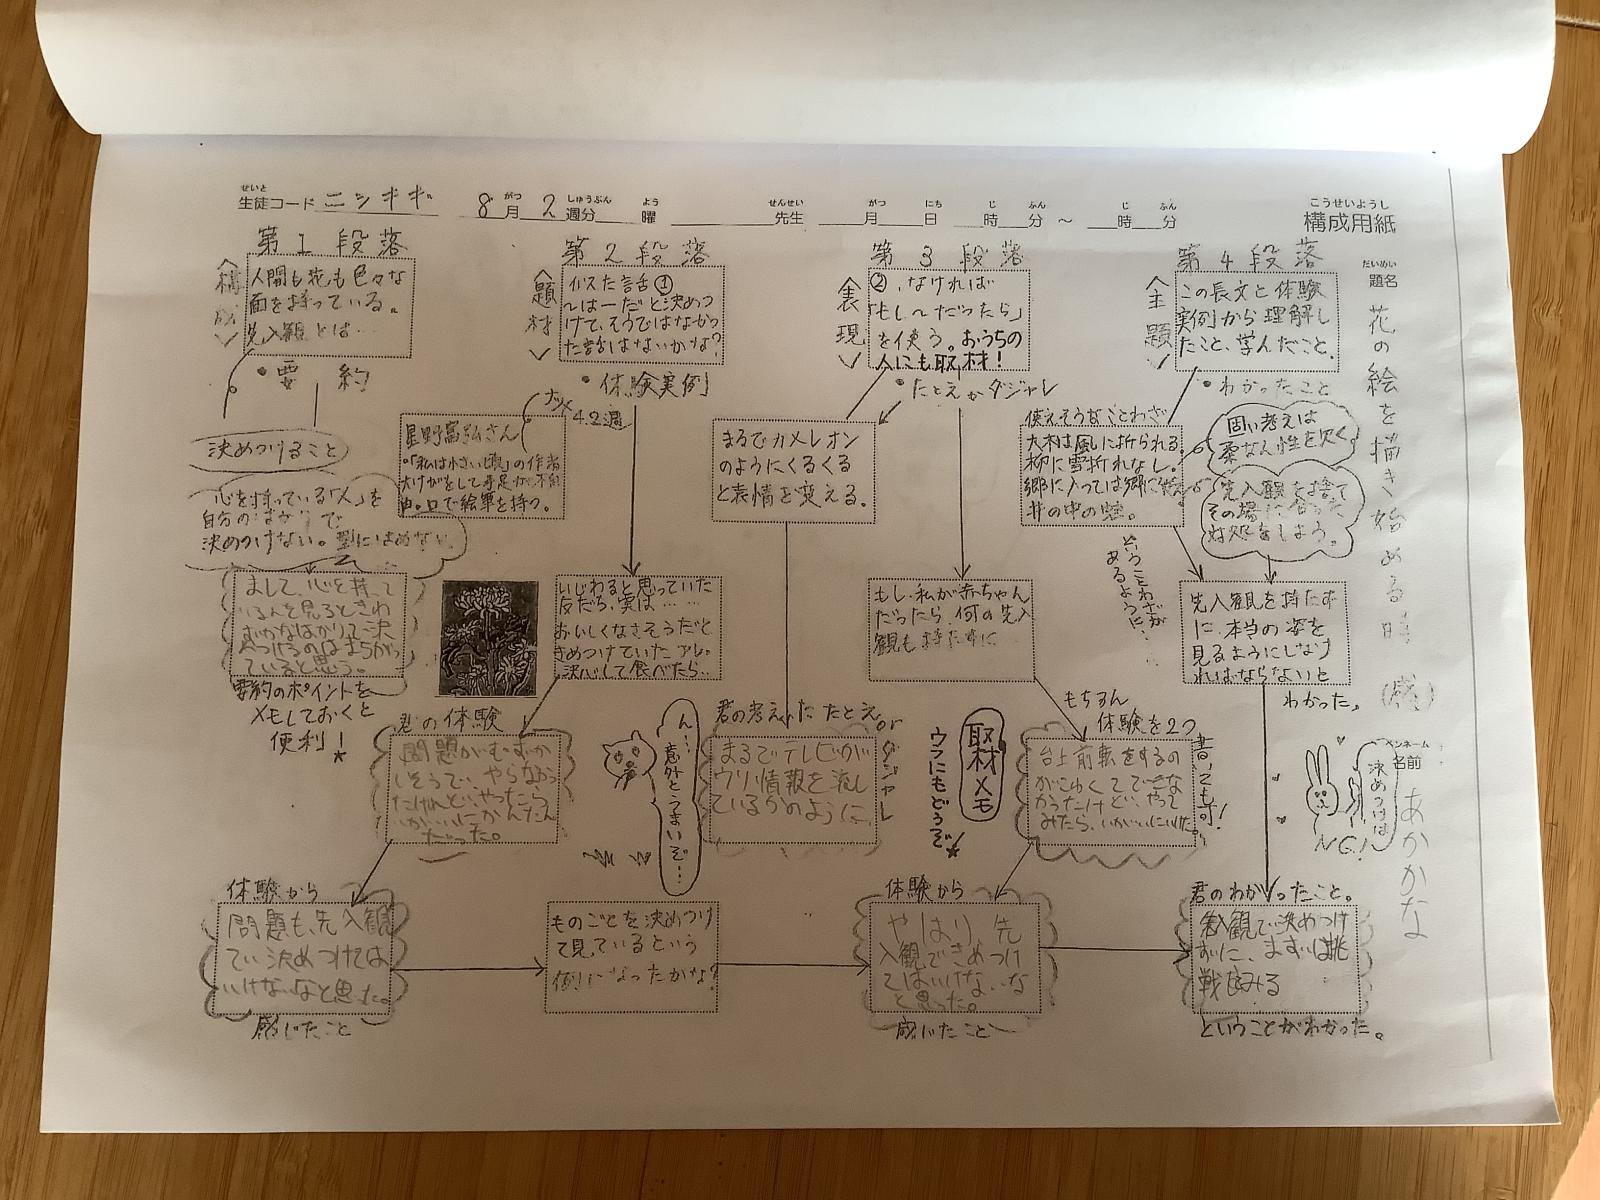 せいと
生徒コード ニシキギ 8月 2週分 曜 先生 月 日 時 分 ～ 時 分
がつ しゅうぶん よう せんせい がつ にち じ ふん じ ふん
こうせいようし
構成用紙
だいめい
題名
花の絵を描き始める時
(感)
ペンネーム
名前
あかかな
第1段落
〈構成〉
人間も花も色々な
面を持っている。
先入観とは…
・要約
決めつけること
心を持っている「人」を
自分の
決めつけない。型にはめない。
まして、心を持って
いる人を見るときわ
ずかなばかりで決
めつけるのはまちがっ
ていると思う。
要約のポイントを
メモしておくと
便利！
第2段落
〈題材〉
似た話①
～は―だと決めつ
けて、そうではなかっ
た話はないかな？
・体験実例
4.2週
星野富弘さん
・「私は小さい頃」の作者
大けがをして手足が不自
由。口で絵筆を持つ。
いじわると思っていた
友だち、実は……
おいしくなさそうだと
きめつけていたアレ。
決心して食べたら…
君の体験
問題がむずか
しそうで、やらなかっ
たけれど、やったら
いがいにかんたん
だった。
体験から
問題も、先入観
で決めつけては
いけないなと思った。
感じたこと
ん…意外とうまいぞ…
ものごとを決めつけ
て見ているという
例になったかな？
第3段落
〈表現〉
②、なければ
「もし～だったら」
を使う。おうちの
人にも取材！
・たとえかダジャレ
まるでカメレオン
のようにくるくる
と表情を変える。
もし、私が赤ちゃん
だったら、何の先入
観も持たずに…
君の考えた たとえ or ダジャレ
まるでテレビが
ウソ情報を流し
ているかのように
取材メモ
ウラにもどうぞ
もちろん
体験を2つ
書いても可！
台上前転をするの
がこわくてできな
かったけど、やって
みたら、いがいに
体験から
やはり、先
入観できめつけ
てはいけないな
と思った。
感じたこと
第4段落
〈主題〉
この長文と体験
実例から理解し
たこと、学んだこと。
・わかったこと
使えそうなことわざ
大木は風に折られる。
柳に雪折れなし。
郷に入っては郷に従え
井の中の蛙。
ということわざが
あるように…
固い考えは
柔なん性を欠く
先入観を捨て
その場に合った
対処をしよう。
先入観を持たず
に、本当の姿を
見るようにしなけ
ればならないと
わかった。
決めつけは
NG！
君のわかったこと。
先入観で決めつけ
ずに、まずは挑
戦してみる
ということがわかった。